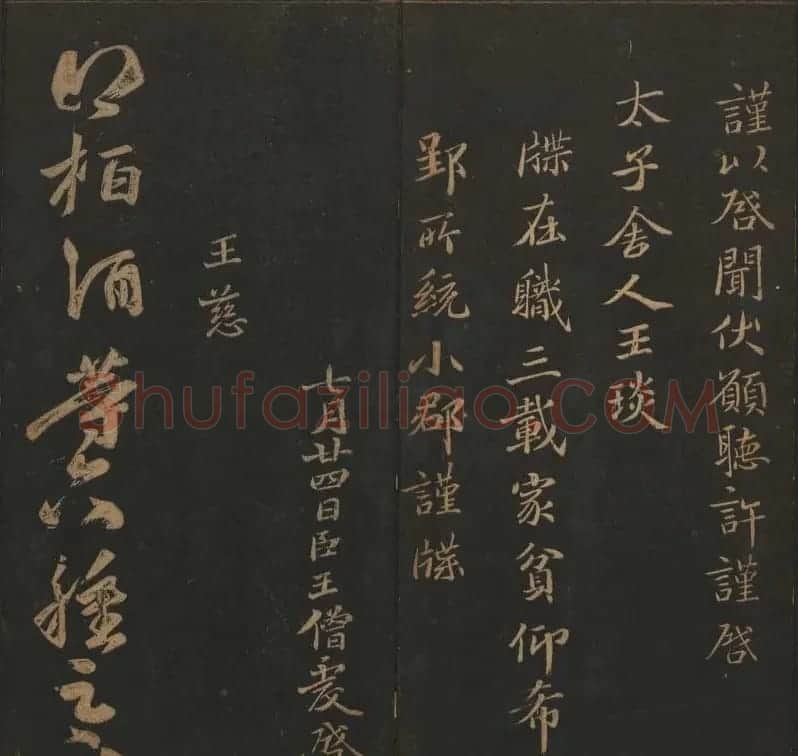 謹以啓聞伏願聽許謹啓
太子舍人王琰
牒在職三載家貧仰希
郢所統小郡謹牒
七月廿四日臣王僧虔啓
王慈
得柏酒等六種足
Shufaziliao.COM